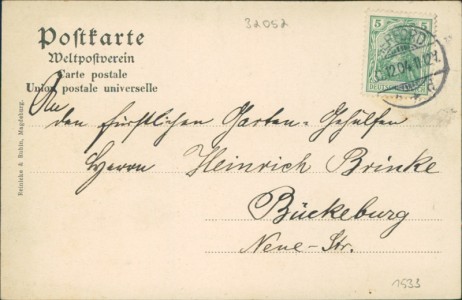 32052
Postkarte
Weltpostverein
Carte postale
Union postale universelle
5 5
DEUTSCHES
HERFORD
12.04.11-12V.
Reinicke & Rubin, Magdeburg.
An
den fürstlichen Garten-Gehülfen
Herrn Heinrich Brinke
Bückeburg
Neue-Str.
1533